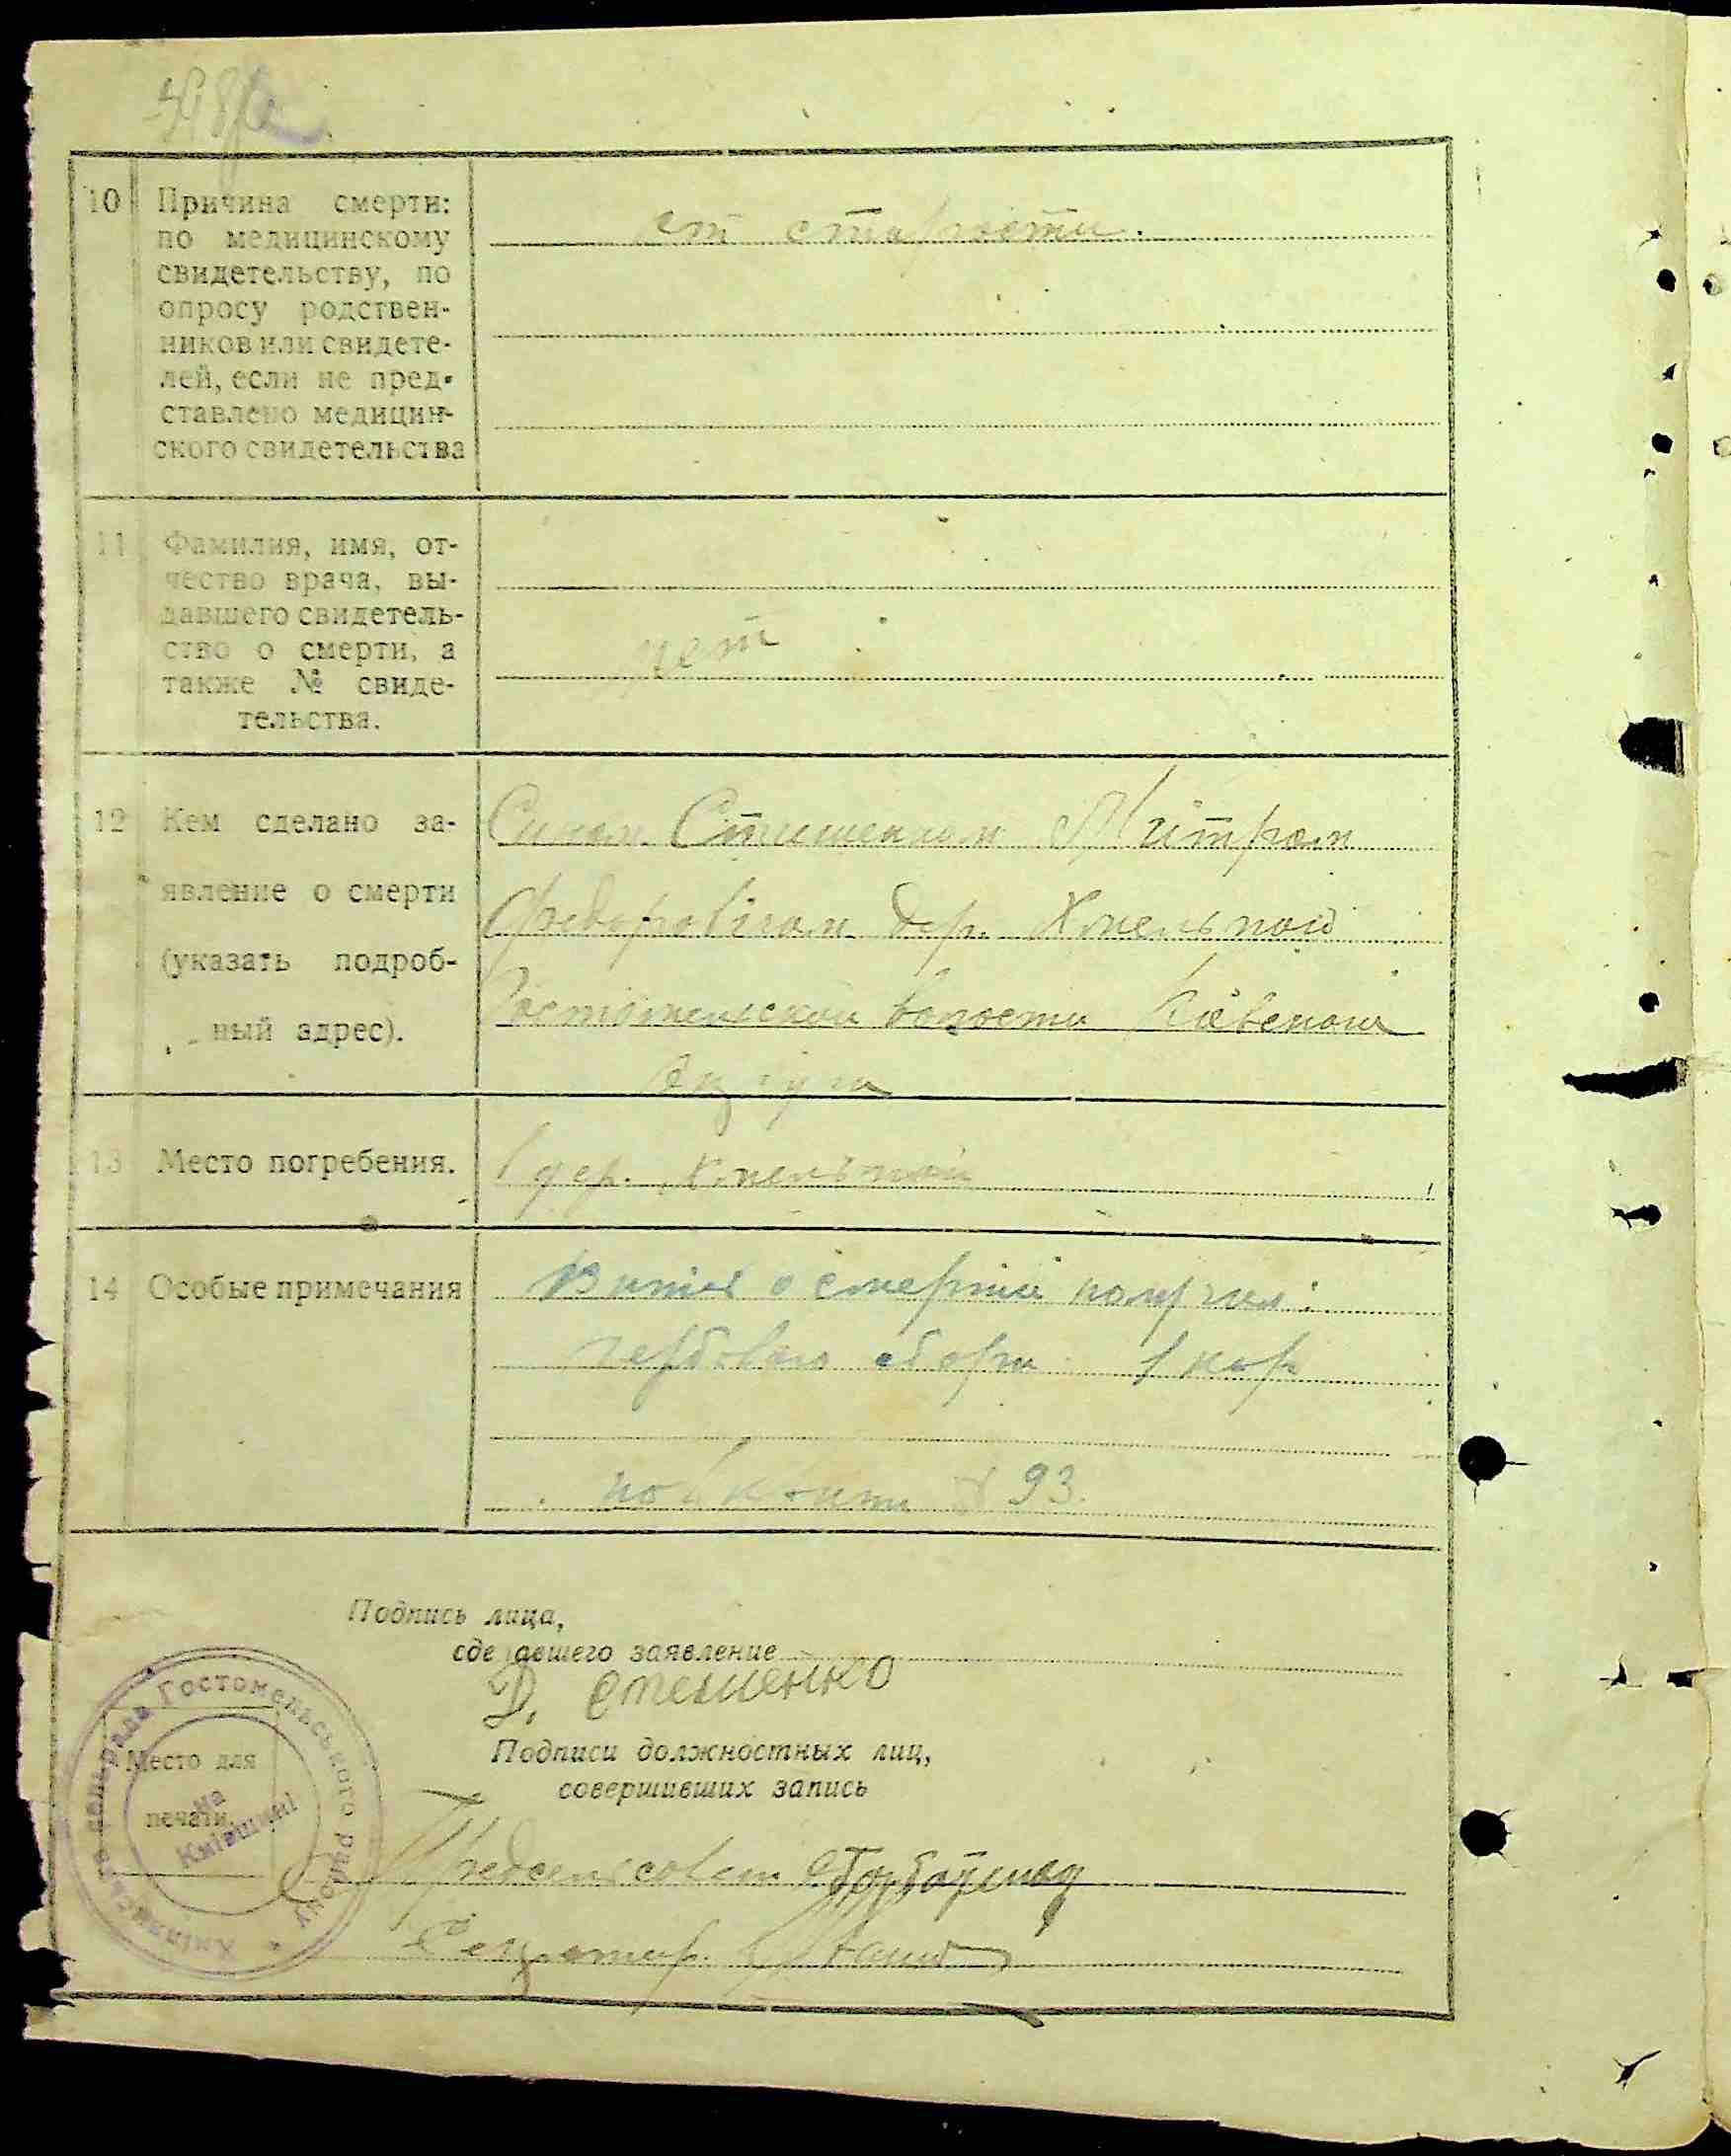 10 Причина смерти:
по медицинскому
свидетельству, по
опросу родствен-
ников или свидете-
лей, если не пред-
ставлено медицин-
ского свидетельства
от старости.
11 Фамилия, имя, от-
чество врача, вы-
давшего свидетель-
ство о смерти, а
также № свиде-
тельства.
нет
12 Кем сделано за-
явление о смерти
(указать подроб-
ный адрес).
Сином Стешенком Митром
Федоровічом дер. Хмельной
Гостомельской волости Київской
13 Место погребения.
В дер. Хмельной
14 Особые примечания
о смерти получил
гербового сбора 1 кор
№ 93.
Подпись лица,
сделавшего заявление
Д. Стешенко
Подписи должностных лиц,
совершивших запись
Место для
печати.
Гостомельського району
на
Київщині
Предсельсовета
Секретар.